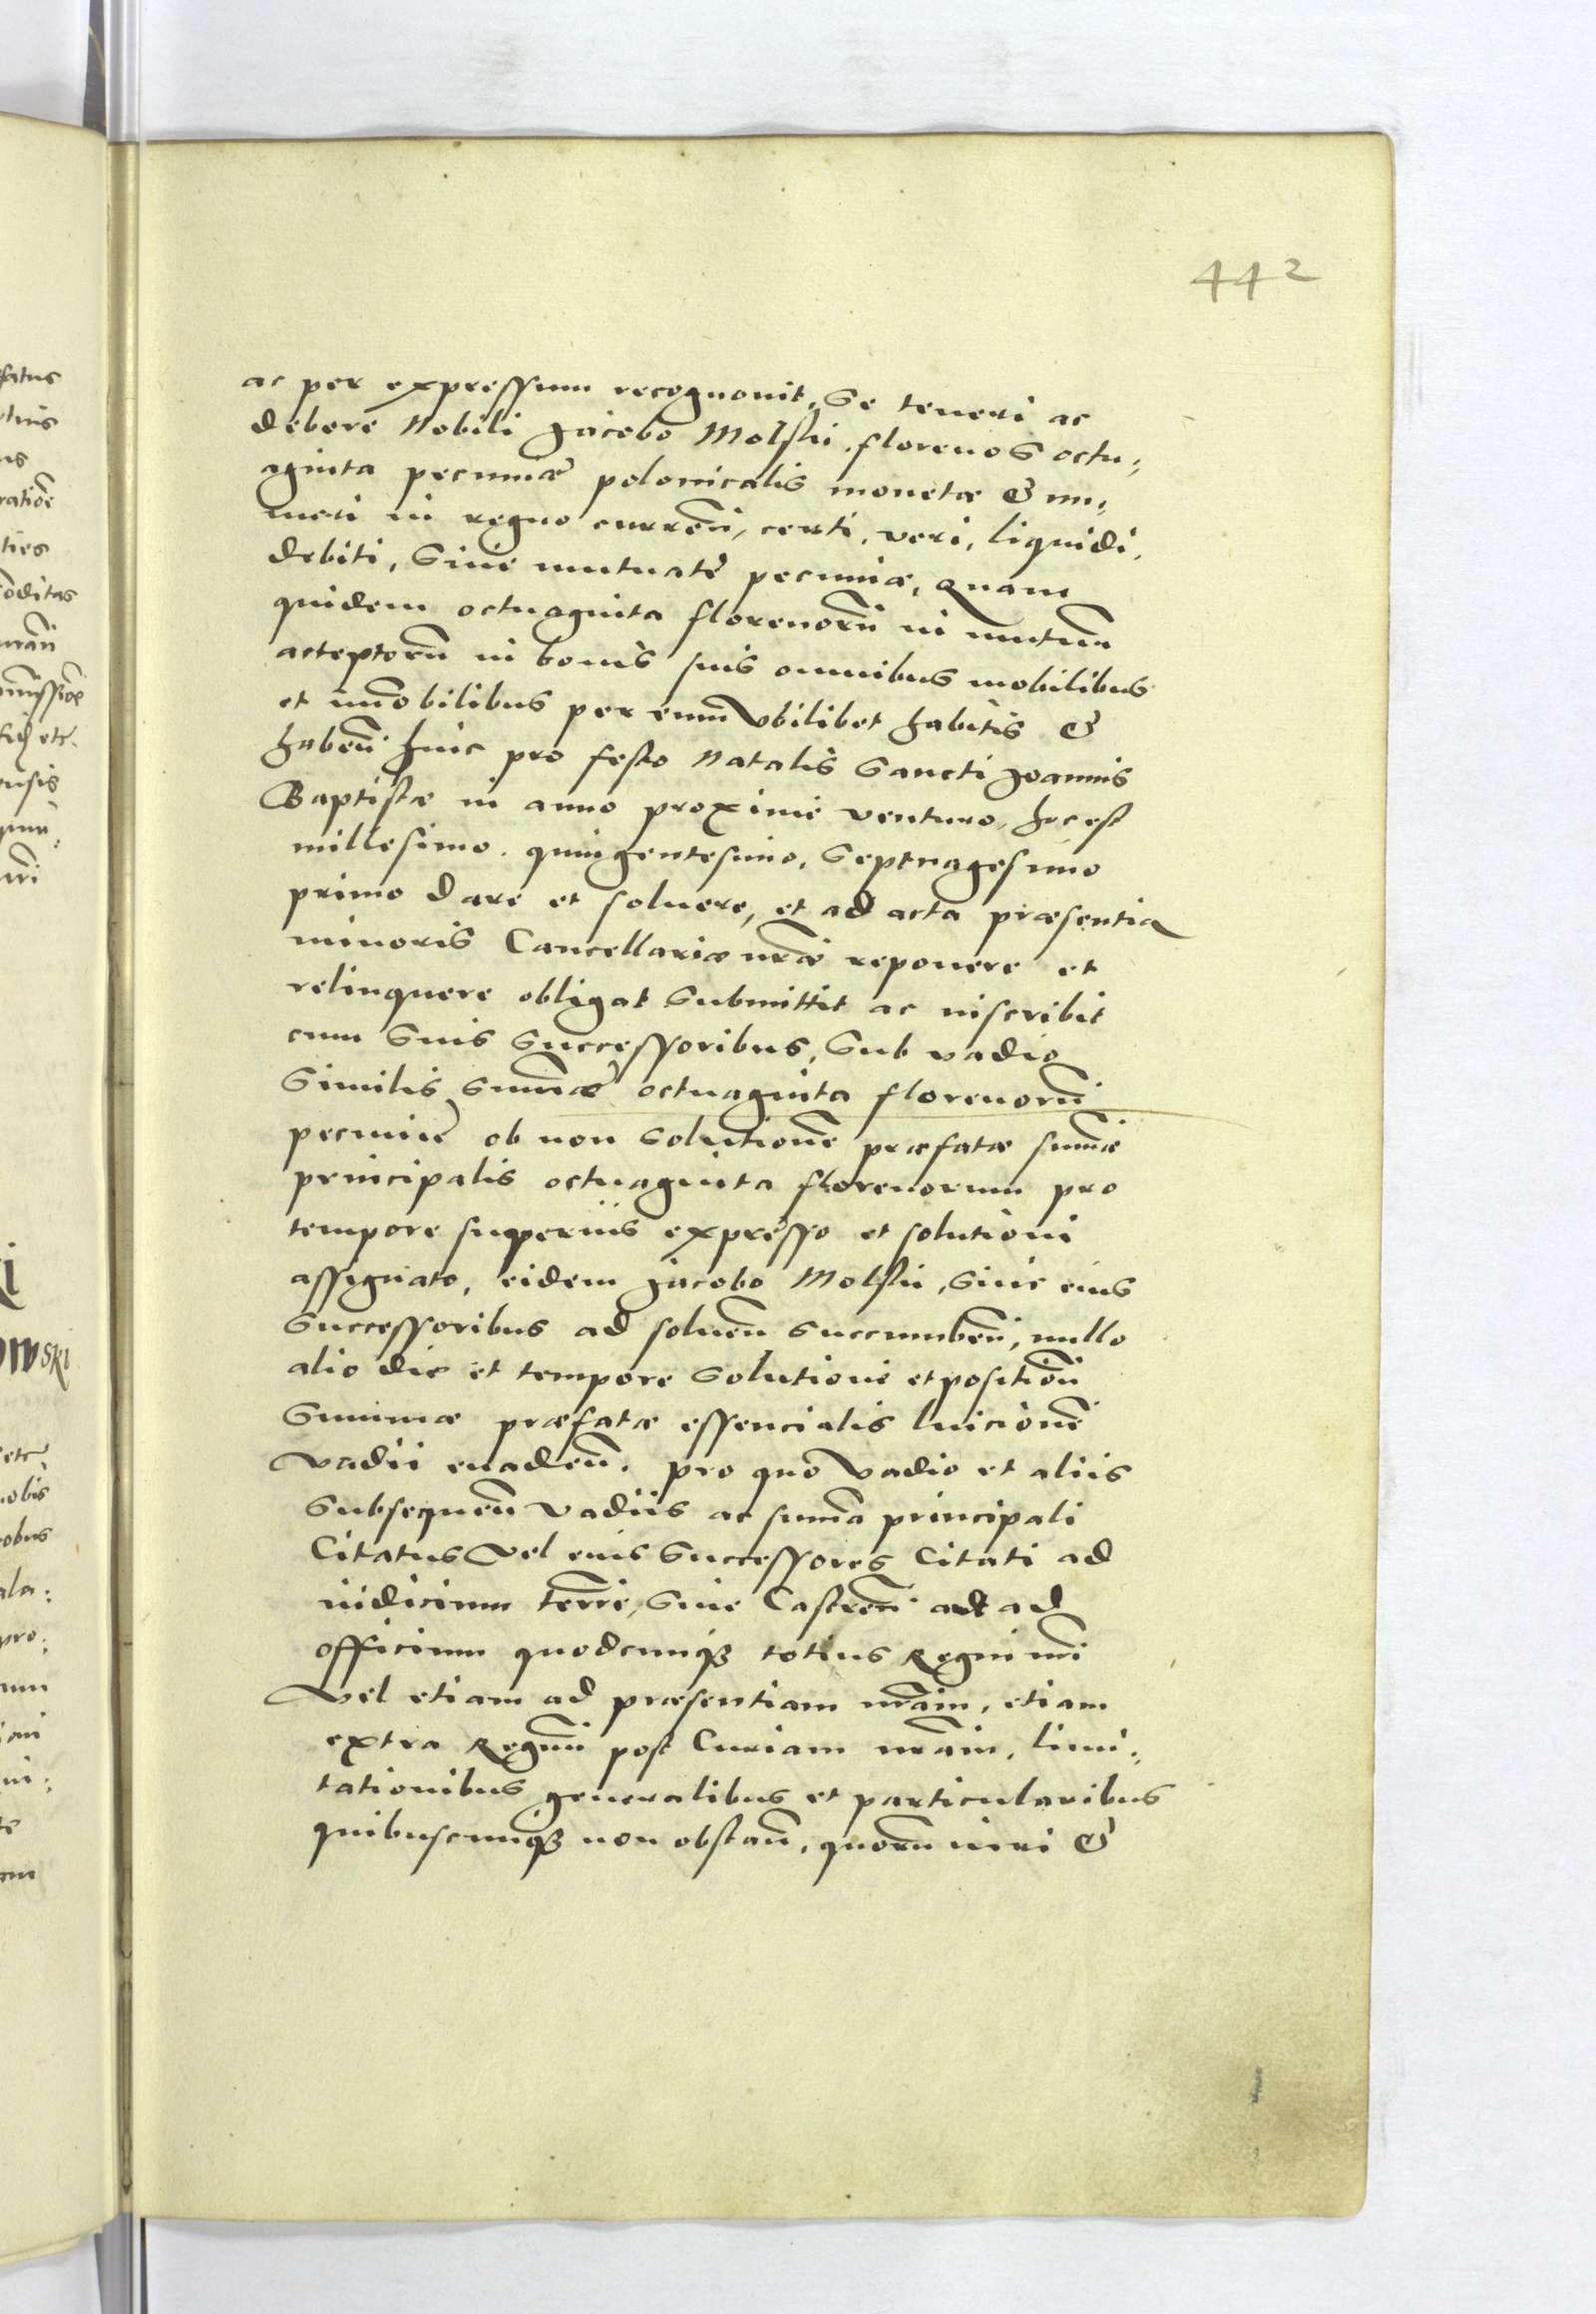 442
ac per expressum recognouit, Se teneri ac
debere Nobili Jacobo Molski. florenos octu¸
aginta pecuniæ polonicalis monetæ & nu¸
meri in regno curreñ, certi, veri, liquidi,
debiti, Siue mutuatę pecuniæ, quam
quidem octuaginta florenorũ in mutuũ
acceptorũ in bonis suis omnibus mobilibus
et im̃obilibus per eum vbilibet habitis &
habeñ huic pro festo Natalis Sancti Joannis
Baptistæ in anno proxime venturo, hoc est
millesimo. quingentesimo, Septuagesimo
primo dare et soluere, et ad acta præsentia
minoris Cancellariæ nr̃æ reponere et
relinquere obligat Submittit ac inscribit
cum Suis Successoribus, Sub vadio
Similis Sum̃æ octuaginta florenorũ
pecunię ob non Solutionẽ præfatæ sum̃æ
principalis octuaginta florenorum pro
tempore superius expresso et solutioni
assignato, eidem Jacobo Molski, Siue eius
Successoribus ad solueñ Succumbeñ, nullo
alio die et tempore Solutione et positioñ
Summæ præfatæ essencialis luicionẽ
vadii euadeñ. pro quo vadio et aliis
Subsequeñ vadiis ac sum̃a principali
Citatus Vel eius Successores Citati ad
iudicium terrẽ, Siue Castreñ aut ad
officium quodcunqȝ totius Regni nr̃i
Vel etiam ad præsentiam nr̃am, etiam
extra Regnũ post Curiam nr̃am, limi¸
tationibus generalibus et particularibus
quibuscunqȝ non obstañ, quorũ iuri &